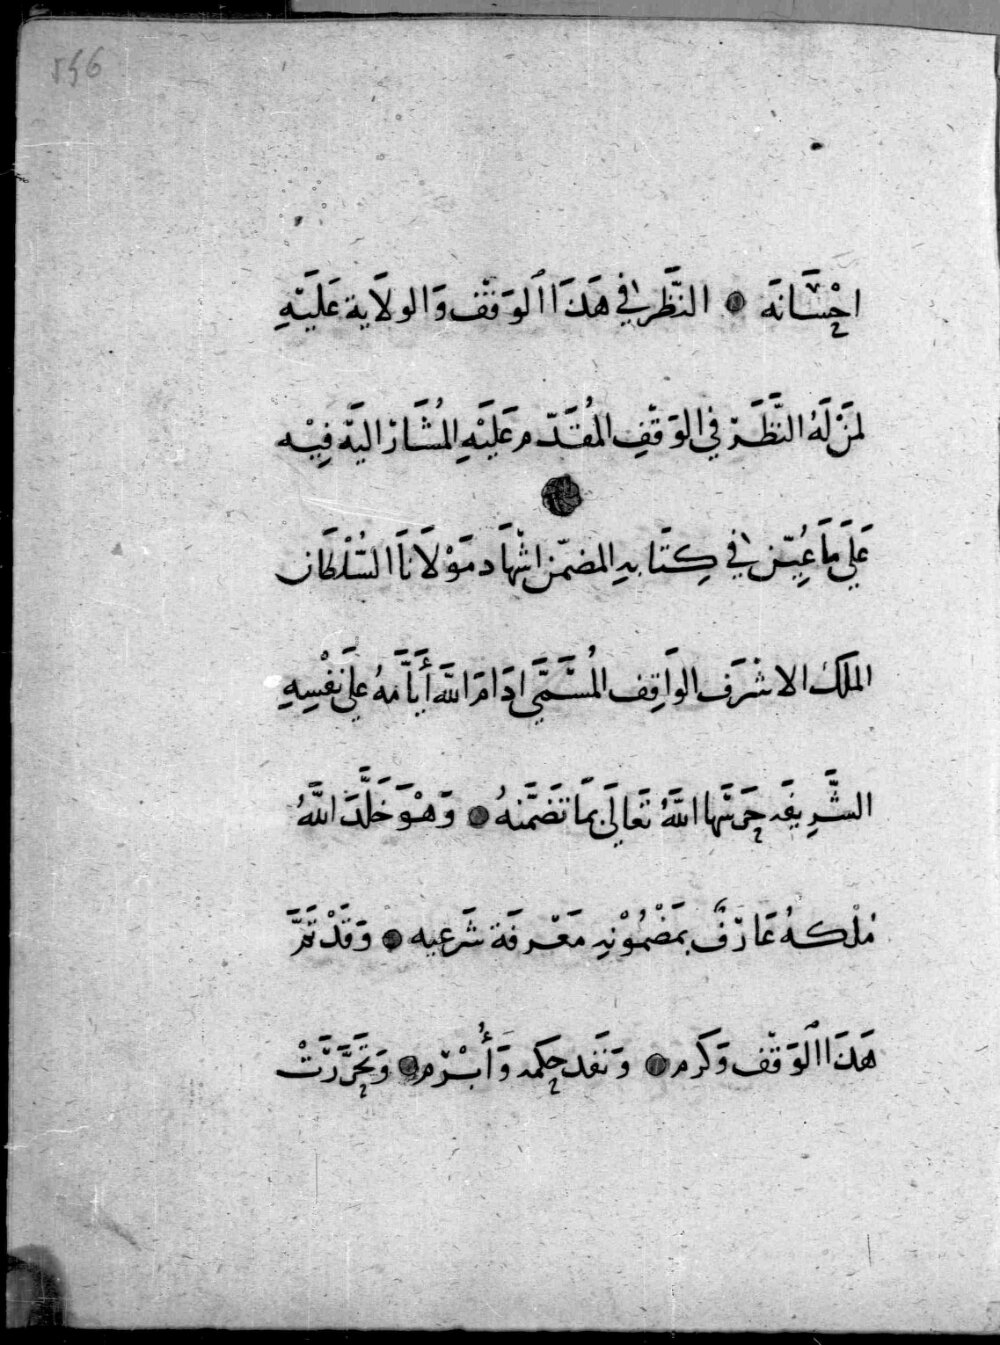 546
احْسَانَه ● النَّظَر فِي هَذَا الوَقْف وَالولَاية عَلَيْهِ
لمَنْ لَهُ النَّظَرْ فِي الوَقْفِ المُقَدّم عَلَيْهِ المُشَار اليَهْ فِيْه
عَلَي مَا عُيِّن فِي كِتَابهِ المضمّن اشْهَاد مَوْلَانَا السُّلْطَان
الملَك الاشْرَف الوَاقِف المُسَمَّي ادَامَ اللَّه أَيَّامَهُ عَلَي نَفْسِهِ
الشَّرِيفَه حَرَسَهَا اللَّهُ تَعَالَي بمَا تَضَمَّنهُ ● وَهْوَ خَلَّدَ اللَّهُ
مُلْكهُ عَارفٌ بمَضْمُوْنهِ مَعْرفَة شَرعيه ● وَقَدْ تَمَّ
هَذَا الوَقْف وَكَرم ● وَنَفَذ حكمه وَأُبْرْم ● وَتَحَرَّرَتْ